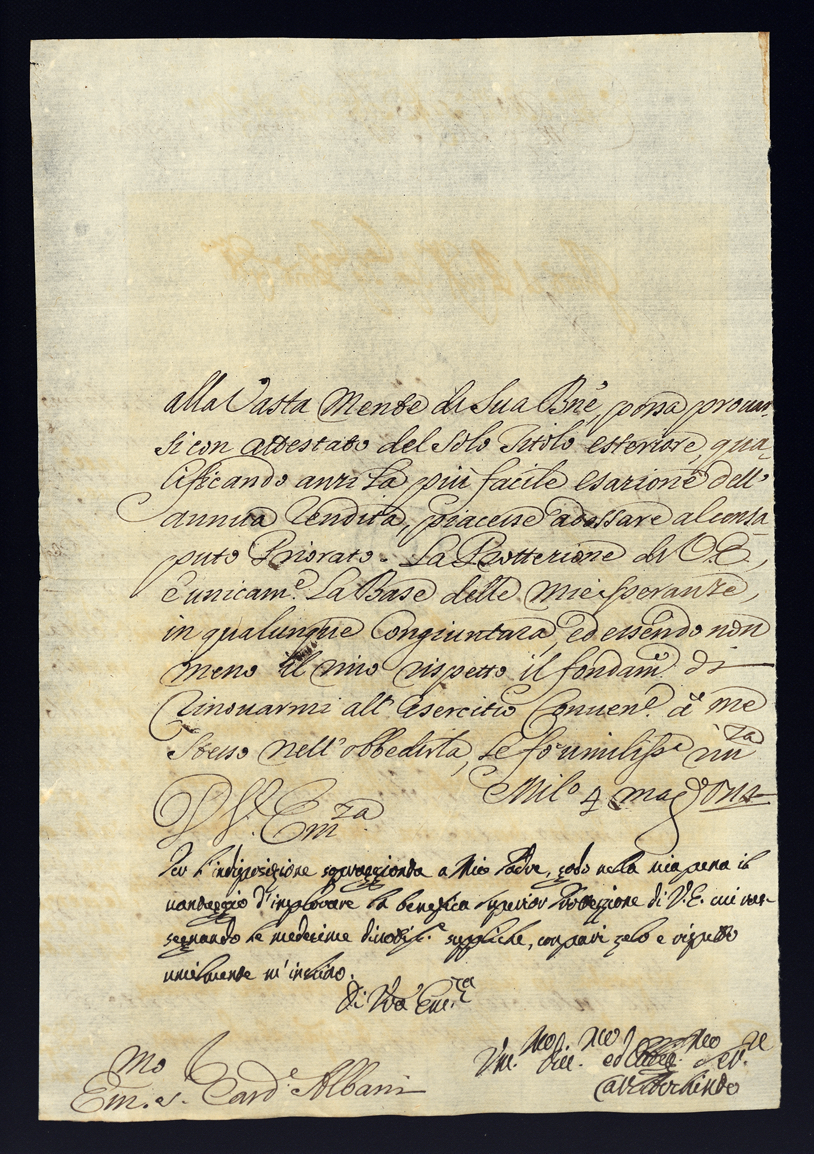 alla Vasta Mente di Sua Bne possa provar
si con attestato del solo Titolo esteriore, qua
lificando anzi la più facile esazione dell'
annua Rendita, piacesse adossare al consa
puto Priorato. La Protterione di V. E.,
è unicam.e La Base delle mie speranze,
in qualunque Congiuntara, ed essendo non
meno il mio rispetto il fondam.o di
all' esercitio Conuen.e à me
stesso nell' obbedirla, le fo umiliss.a
D V. Em.za Mil.o 4 mag.o
Per l'indiposizione sopraggionta a Mio Padre, godo nella mia pena il
vantaggio d'implorare la benefica superior Protezzione di V. E. cui ras-
segnando le medesime suppliche, con pari zelo e rispetto
umilmente m'inchino.
Di Vra Em.za
Vm. Dev. ed ser.
Em. s. Card.e Albani